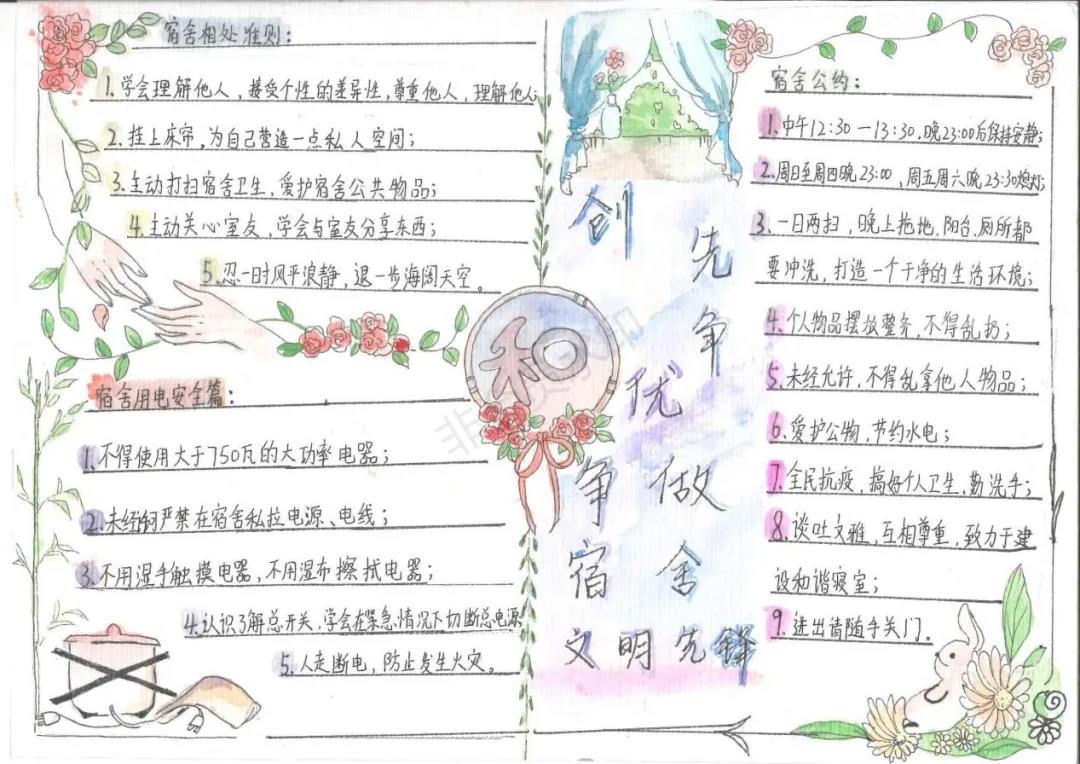 宿舍相处准则:
1.学会理解他人,接受个性的差异性,尊重他人,理解他人;
2.挂上床帘,为自己营造一点私人空间;
3.主动打扫宿舍卫生,爱护宿舍公共物品;
4.主动关心室友,学会与室友分享东西;
5.忍一时风平浪静,退一步海阔天空。
宿舍用电安全篇:
1.不得使用大于750瓦的大功率电器;
2.未经 严禁在宿舍私拉电源、电线;
3.不用湿手触摸电器,不用湿布擦拭电器;
4.认识了解总开关,学会在紧急情况下切断总电源
5.人走断电,防止发生火灾。
和
创先争优
争做宿舍
文明先锋
宿舍公约:
1.中午12:30—13:30,晚23:00后保持安静;
2.周日至周四晚23:00,周五周六晚23:30熄灯;
3.一日两扫,晚上拖地,阳台、厕所都
要冲洗,打造一个干净的生活环境;
4.个人物品摆放整齐,不得乱扔;
5.未经允许,不得乱拿他人物品;
6.爱护公物,节约水电;
7.全民抗疫,搞好个人卫生、勤洗手;
8.谈吐文雅,互相尊重,致力于建
设和谐寝室;
9.进出请随手关门.